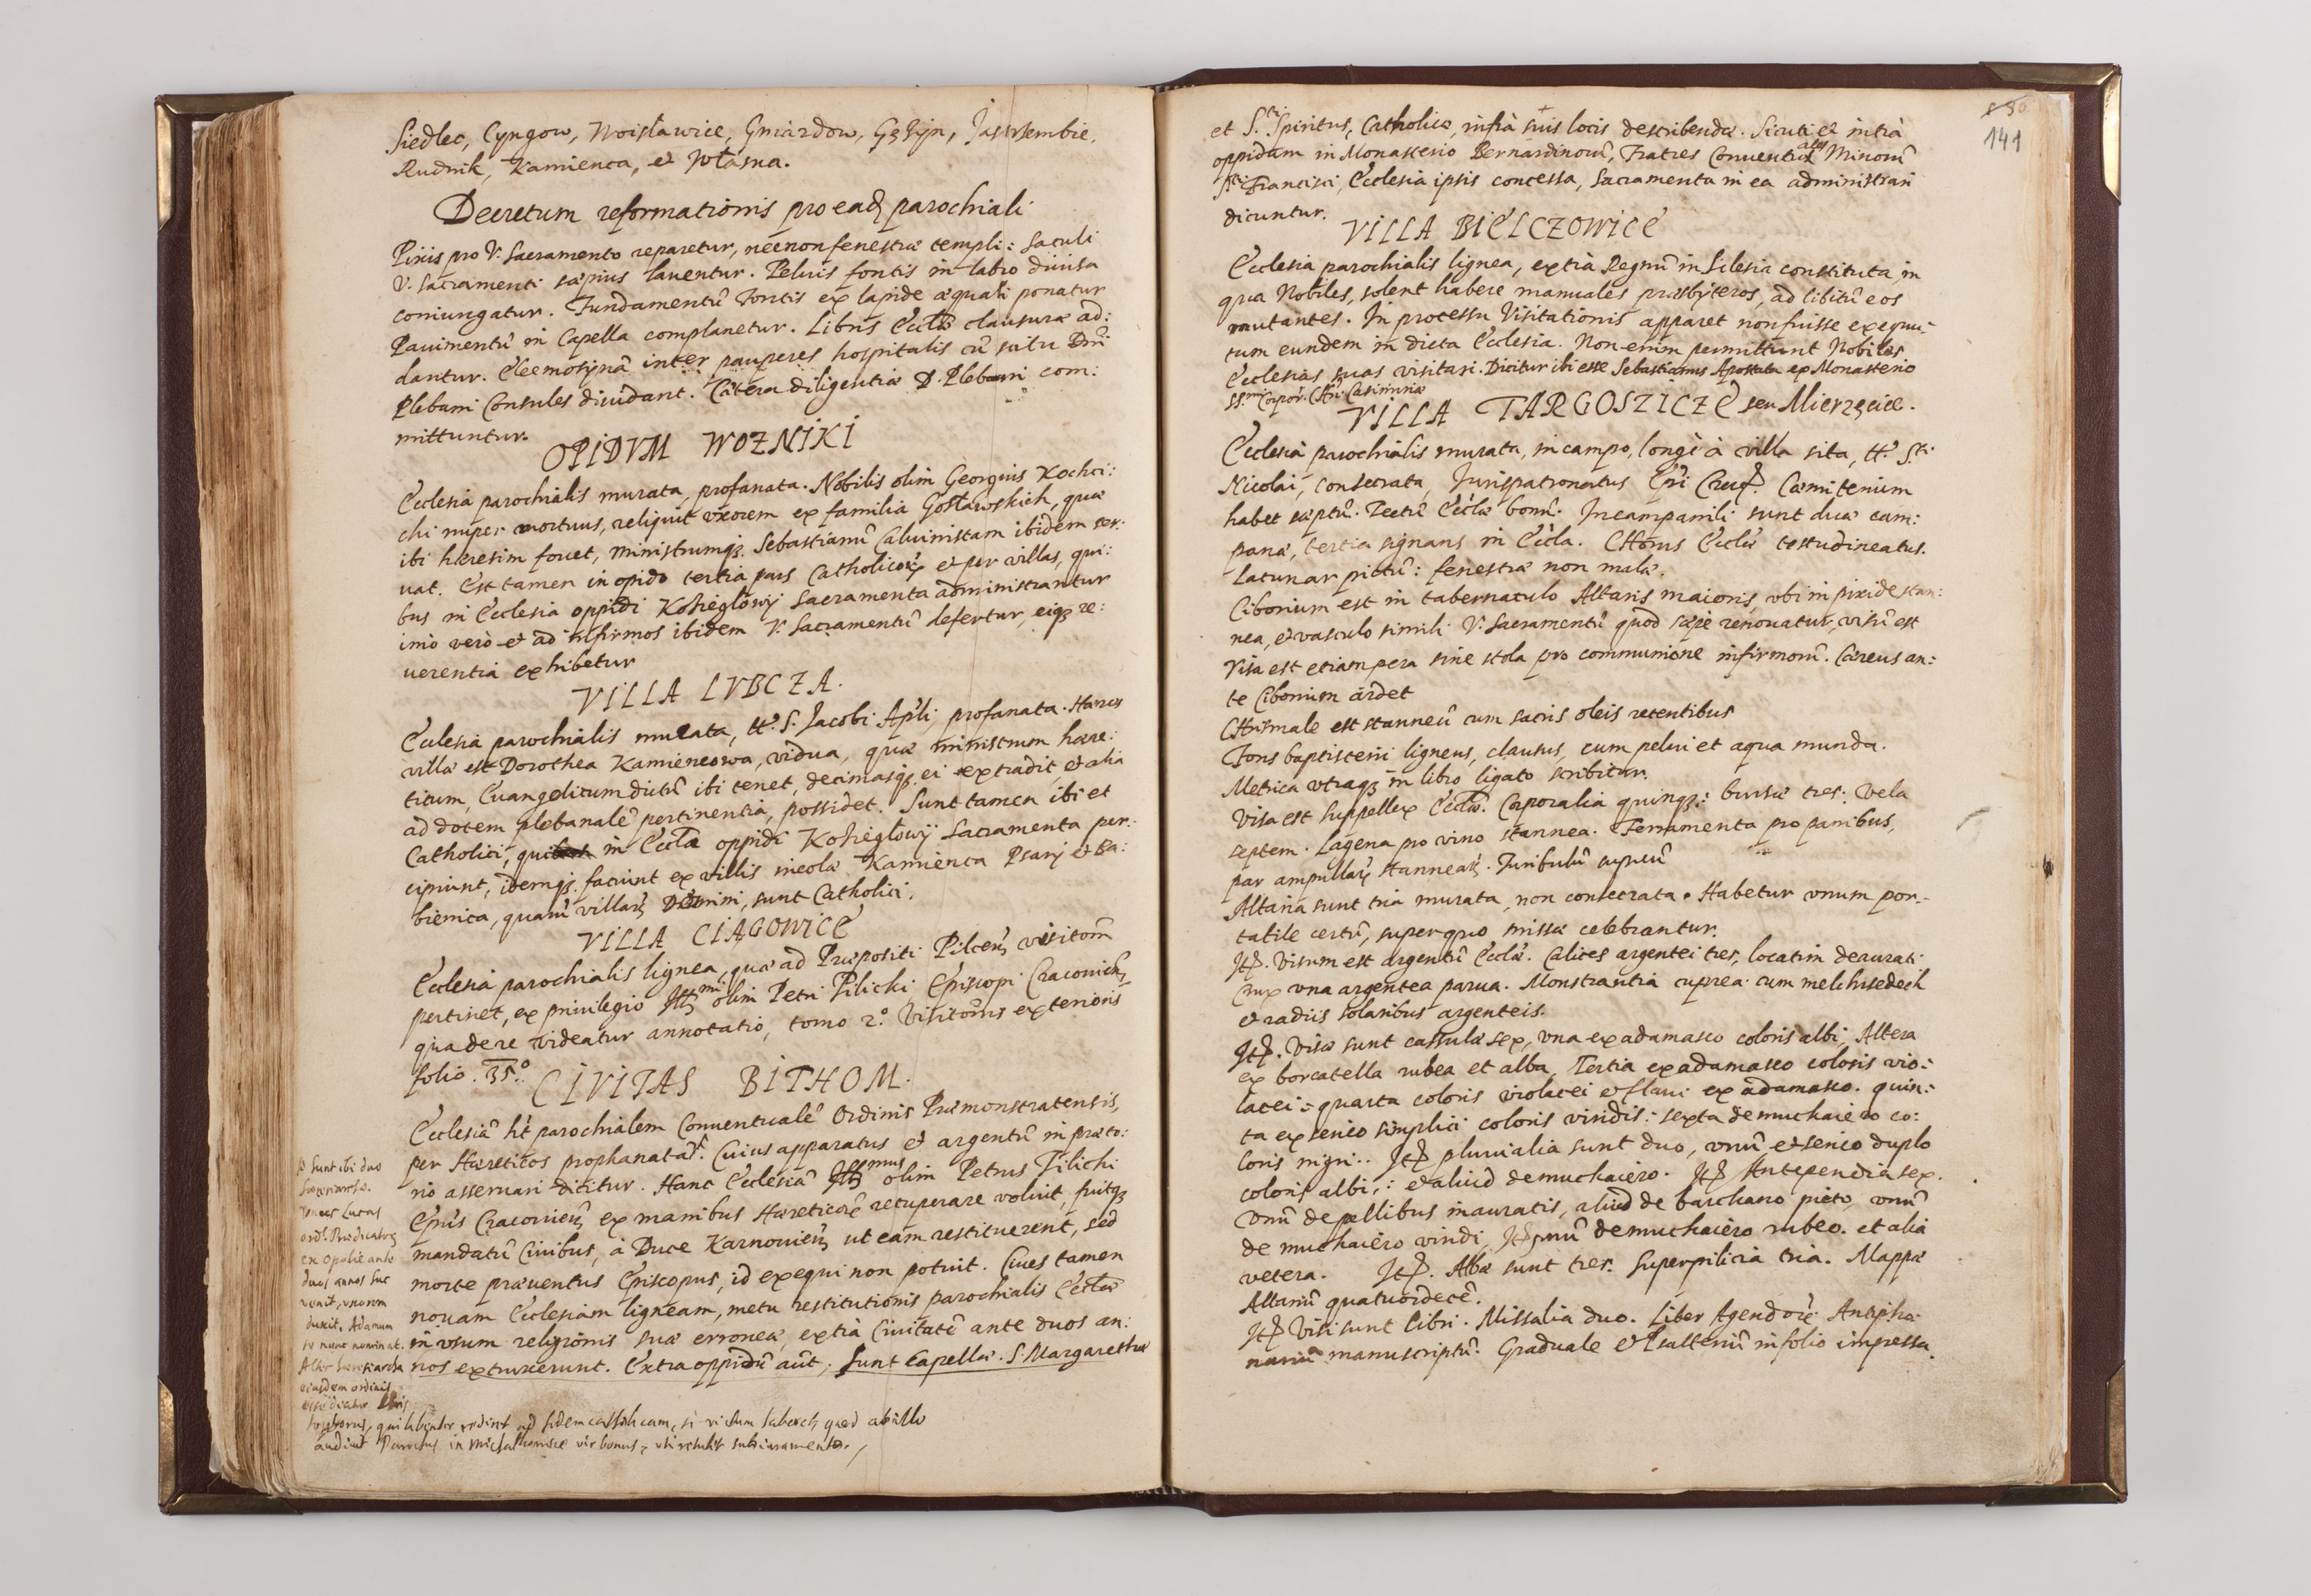 Siedlec, Cyngow, Woisławice, Gniazdow, Gęzijn, Jastrsembie,
Rudnik, Kamienca, et Własna.
Decretum reformationis pro eadꝫ parochiali
Pixis pro V. Sacramento reparetur, necnon fenestræ templi: Saculi
V. Sacramenti sæpius lauentur. Peluis fontis in labro diuisa
coniungatur. Fundamentū Fontis ex lapide æquali ponatur
Pauimentū in Capella complanetur. Libris Ecclæ clausuræ ad:
dantur. Eleemosynā inter pauperes hospitalis cū scitu Dni
Plebani Consules diuidant. Cætera diligentiæ D. Plebani com:
mittuntur.
OPIDVM WOZNIKI
Ecclesia parochialis murata, profanata. Nobilis olim Georgius Kochci:
chi nuper mortuus, reliquit vxorem ex familia Gosławskich, quæ
ibi hæresim fouet, ministrumqꝫ Sebastianū Caluinistam ibidem ser:
uat. Est tamen in opido tertia pars Catholicoꝝ et per villas, qui:
bus in Ecclesia oppidi Koziegłowy Sacramenta administrantur
imò verò et ad infirmos ibidem V. Sacramentū defertur, eiqꝫ re:
uerentia exhibetur
VILLA LVBCZA.
Ecclesia parochialis murata, tt. S. Jacobi Apli, profanata. Hæres
villæ est Dorothea Kamieneowa, vidua, quæ ministrum hære:
ticum, Euangelicum dictū ibi tenet, decimasqꝫ ei extradit, et alia
ad dotem plebanalē pertinentia, possidet. Sunt tamen ibi et
Catholici, qui in Eccla oppidi Koziegłowij Sacramenta per:
cipiunt, idemqꝫ faciunt ex villis incolæ Kamienca Psarj et Ba:
bienica, quarū villaꝝ Domini, sunt Catholici.
VILLA CIĄGOWICE
Ecclesia parochialis lignea, quæ ad Præpositi Pilceñ visitõm
pertinet, ex priuilegio Illmi olim Petri Pilicki Episcopi Cracouieñ
qua de re videatur annotatio, tomo 2º Visitõnis exterioris
folio. 35º.
CIVITAS BITHOM.
Ecclesiā ht parochialem Conuentualē Ordinis Præmonstratensis,
per Hæreticos prophanatā. Cuius apparatus et argentū in præto:
rio asseruari dicitur. Hanc Ecclesiā Illmus olim Petrus Pilichi
Epus Cracouieñ ex manibus Hæreticoꝝ recuperare voluit, fuitqꝫ
mandatū Ciuibus, à Duce Karnouieñ ut eam restituerent, sed
morte præuentus Episcopus, id exequi non potuit. Ciues tamen
nouam Ecclesiam ligneam, metu restitutionis parochialis Ecclæ
in vsum religionis suæ erroneæ, extrà Ciuitatē ante duos an:
nos extruxerunt. Extra oppidū aūt, sunt Capellæ. S. Margarethæ
Sunt ibi duo
hæresiarchæ.
Lucas
ord. Prædicatoꝝ
ex Opolie ante
duos annos huc
venit, vxorem
duxit. Adamum
se nunc nominat.
Alter hæresiarcha
eiusdem ordinis
esse dicitur
qui libenter rediret ad fidem catholicam, si victum haberet, quod ab illo
audiuit Parochus in Michalkowice vir bonus, vti retulit sub iuramento.
141
et S. Spiritus, Catholicæ, infrà suis locis describendæ. Sicuti et intrà
oppidum in Monasterio Bernardinorū, Fratres Conuentuales Minorū
Sti Francisci, Ecclesia ipsis concessa, Sacramenta in ea administrari
dicuntur.
VILLA BIELCZOWICE
Ecclesia parochialis lignea, extrà Regnū in Silesia constituta, in
qua Nobiles, solent habere manuales præsbyteros, ad libitū eos
mutantes. In processu Visitationis apparet non fuisse exequu:
tum eundem in dicta Ecclesia. Non enim permittunt Nobiles
Ecclesias suas visitari. Dicitur ibi esse Sebastianus Apostata ex Monasterio
SS.mi Corpor. Chri Casimiriæ
VILLA TARGOSZICZE seu Mierzęcice.
Ecclesia parochialis murata, in campo, longè à villa sita, tt. S.ti
Nicolai, consecrata, Jurispatronatus Cæmiterium
habet sæptū. Tectū Ecclæ bonū. In campanili sunt duæ cam:
panæ, tertia signans in Eccla. Chorus Ecclæ testudineatus.
Lacunar pictū: fenestræ non malæ.
Ciborium est in tabernaculo Altaris maioris, vbi in pixide stan:
nea, et vasculo simili V. Sacramentū quod sæpe renouatur, visū est
Visa est etiam pera sine stola pro communione infirmorū. Cæreus an:
te Ciborium ardet
Chrismale est stanneū cum sacris oleis recentibus
Fons baptisterii ligneus, clausus, cum pelui et aqua munda.
Metrica vtraqꝫ in libro ligato scribitur.
Visa est suppellex Ecclæ. Corporalia quinqꝫ: bursæ tres: Vela
septem. Lagena pro vino stannea. Ferramenta pro panibus,
par ampullaꝝ stanneaꝝ. Turibulū cupreū
Altaria sunt tria murata, non consecrata. Habetur vnum por:
tatile certū, super quo missæ celebrantur.
Itꝫ. Visum est argentū Ecclæ. Calices argentei tres, locatim deaurati
Crux vna argentea parua. Monstrantia cuprea cum melchisedech
et radiis solaribus argenteis.
Itꝫ. Visæ sunt cassulæ sex, vna ex adamasco coloris albi, Altera
ex borcatella rubea et alba, Tertia ex adamasco coloris vio:
lacei: quarta coloris violacei et flaui ex adamasco. quin:
ta ex serico simplici coloris viridis: sexta de muchaiero co:
loris nigri. Itꝫ pluuialia sunt duo, vnū ex serico duplo
coloris albi: et aliud de muchaiero. Itꝫ Antependia sex.
Vnū de pellibus inauratis, aliud de barchano picto, vnū
de muchaiero viridi, Itꝫ vnū de muchaiero rubeo. et alia
vetera. Itꝫ. Albæ sunt tres. Superpilicia tria. Mappæ
Altariū quatuordecē.
Itꝫ Visi sunt libri. Missalia duo. Liber Agendoꝝ Antipho:
nariū manuscriptū. Graduale et Psalteriū in folio impressa.